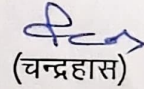 (चन्द्रहास)